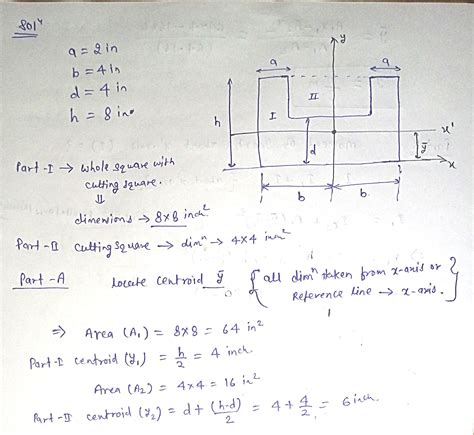 Solⁿ
a = 2 in
b = 4 in
d = 4 in
h = 8 in.
y
a
a
II
I
h
d
x'
ȳ
x
b
b
Part-I → whole square with
cutting square.
⇓
dimensions → 8×8 inch²
Part-II cutting square → dimⁿ → 4×4 inch²
Part-A Locate centroid ȳ { all dimⁿ taken from x-axis or
Reference line → x-axis. }
⇒ Area (A₁) = 8×8 = 64 in²
Part-I centroid (y₁) = h/2 = 4 inch.
Area (A2) = 4×4 = 16 in²
Part-II centroid (y₂) = d + (h-d)/2 = 4 + 4/2 = 6 inch.